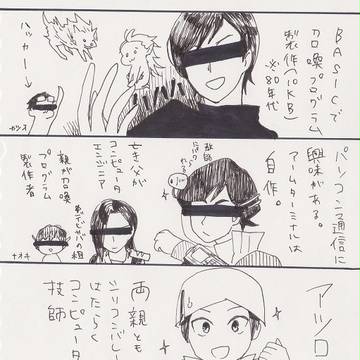 BASICで
召喚プログラム
製作(10KB)
※80年代
ハッカー→
パソコン通信に
興味がある。
アームターミナルは
自作。
亡き父が
コンピュータ
エンジニア
親が召喚
プログラム
製作者
ナオキ
アツロ
両親とも
シリコンバレー
はたらく
コンピュータ
技師